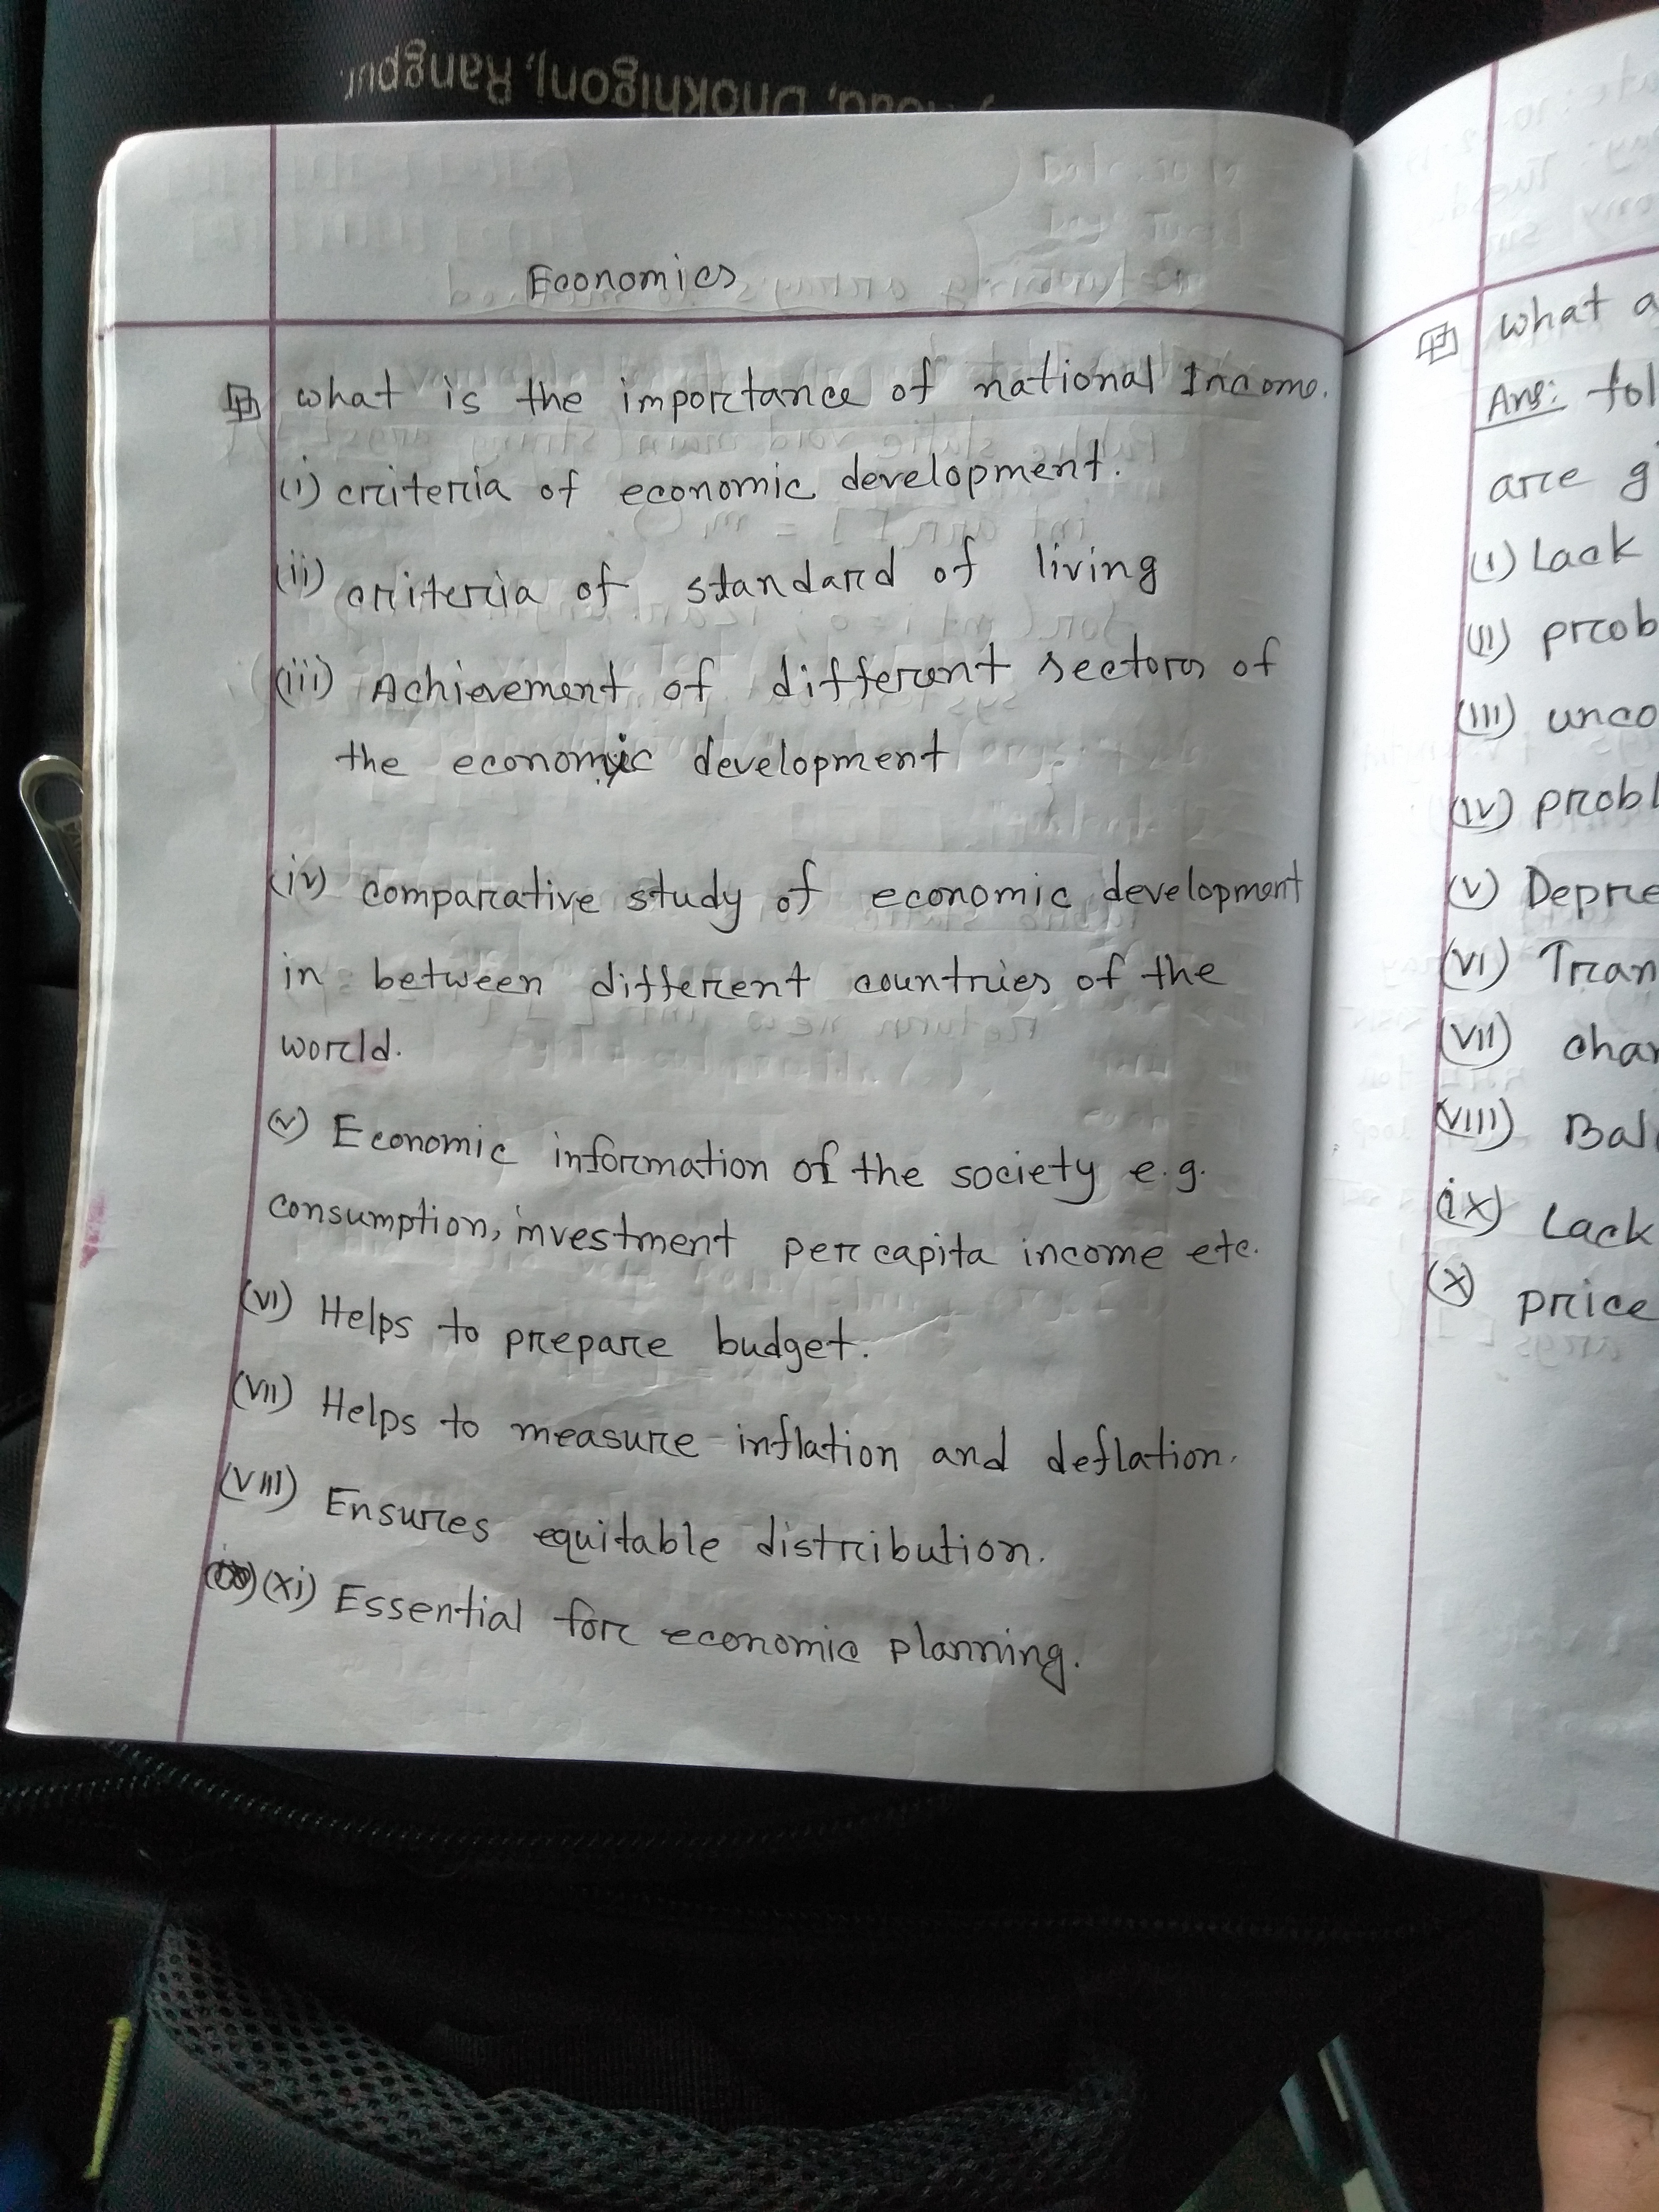 Rangpur.
Economics
What is the importance of national Income.
(i) criteria of economic development.
(ii) criteria of standard of living
(iii) Achievement of different sectors of
the economic development
(iv) comparative study of economic development
in between different countries of the
world.
(v) Economic information of the society e.g.
consumption, investment per capita income etc.
(VI) Helps to prepare budget.
(VII) Helps to measure inflation and deflation.
(VIII) Ensures equitable distribution.
(xi) Essential for economic planning.
What a
Ans: fol
are g
(I) Lack
(II) prob
(III) unco
(IV) probl
(V) Depre
(VI) Tran
(VII) char
(VIII) Bal
(ix) Lack
(X) price